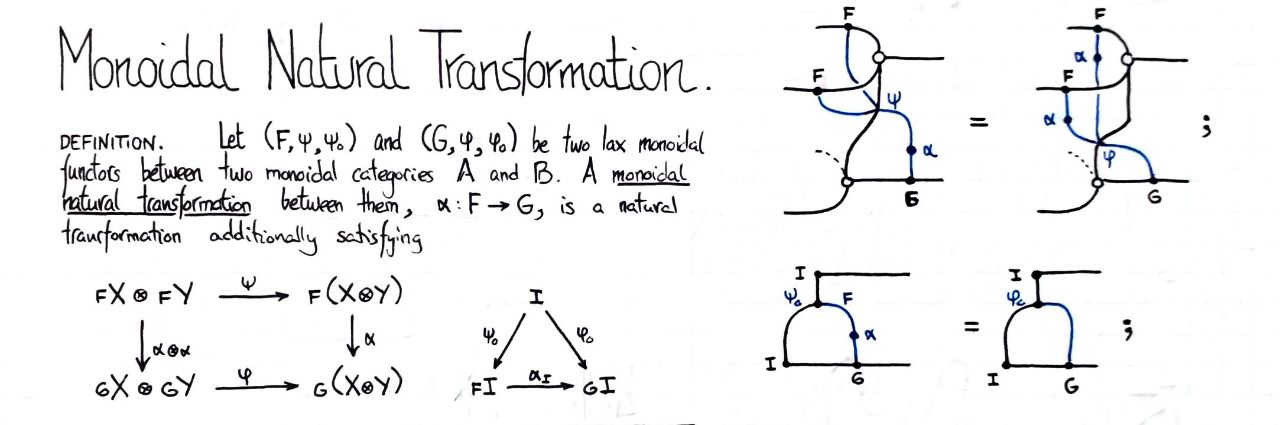 Monoidal Natural Transformation.
DEFINITION. Let (F, ψ, ψ₀) and (G, φ, φ₀) be two lax monoidal
functors between two monoidal categories A and B. A monoidal
natural transformation between them, α : F → G, is a natural
tranrformation additionally satisfying
FX ⊗ FY ψ F(X⊗Y)
α⊗α α
GX ⊗ GY φ G(X⊗Y)
I
ψ₀ φ₀
FI α_I GI
F
F
ψ
α
G
=
F
α
F
α
φ
G
;
I
ψ₀ F
α
I G
=
I
φ₀
I G
;